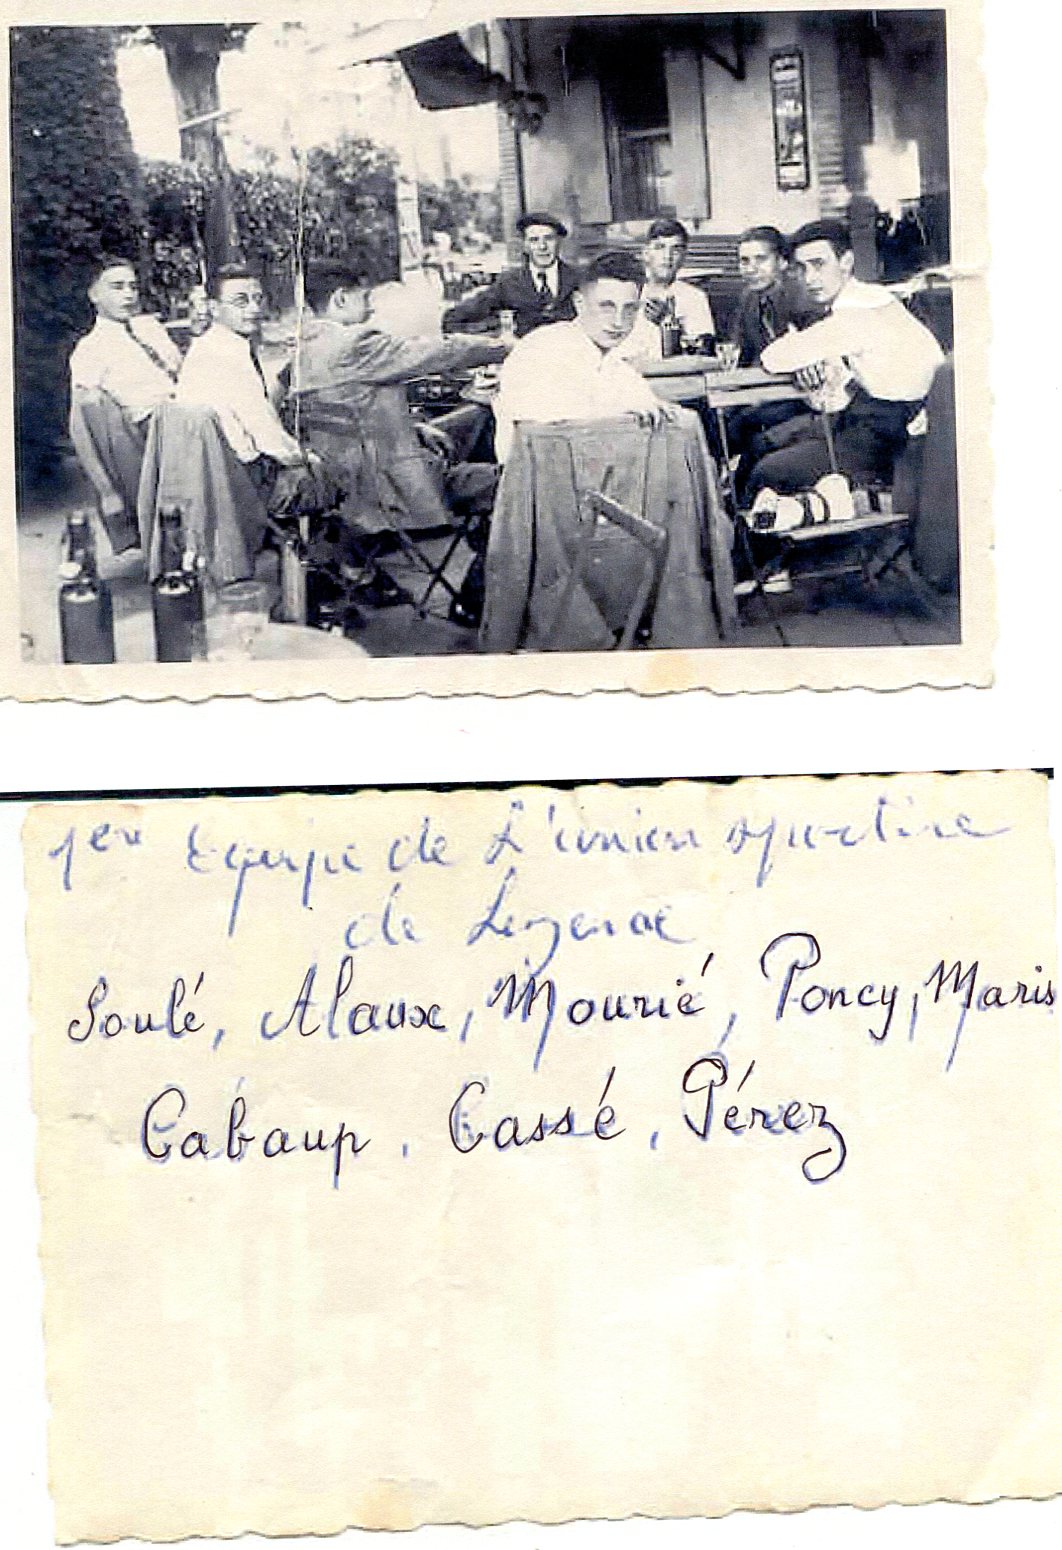 1ere Equipe de L'union sportive
de Luzenac
Soulé, Alaux, Mourié, Poncy, Maris
Cabaup, Cassé, Pérez